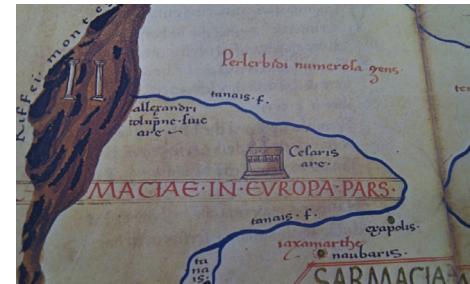 Riffei · monte
Perlerbidi numerosa gens·
tanais · f ·
allexandri
colupne · siue
are
Cesaris
are ·
MACIAE · IN · EVROPA · PARS ·
tanais · f ·
exapolis ·
iaxamarthe
naubaris ·
ta
na
is ·
SARMACIA